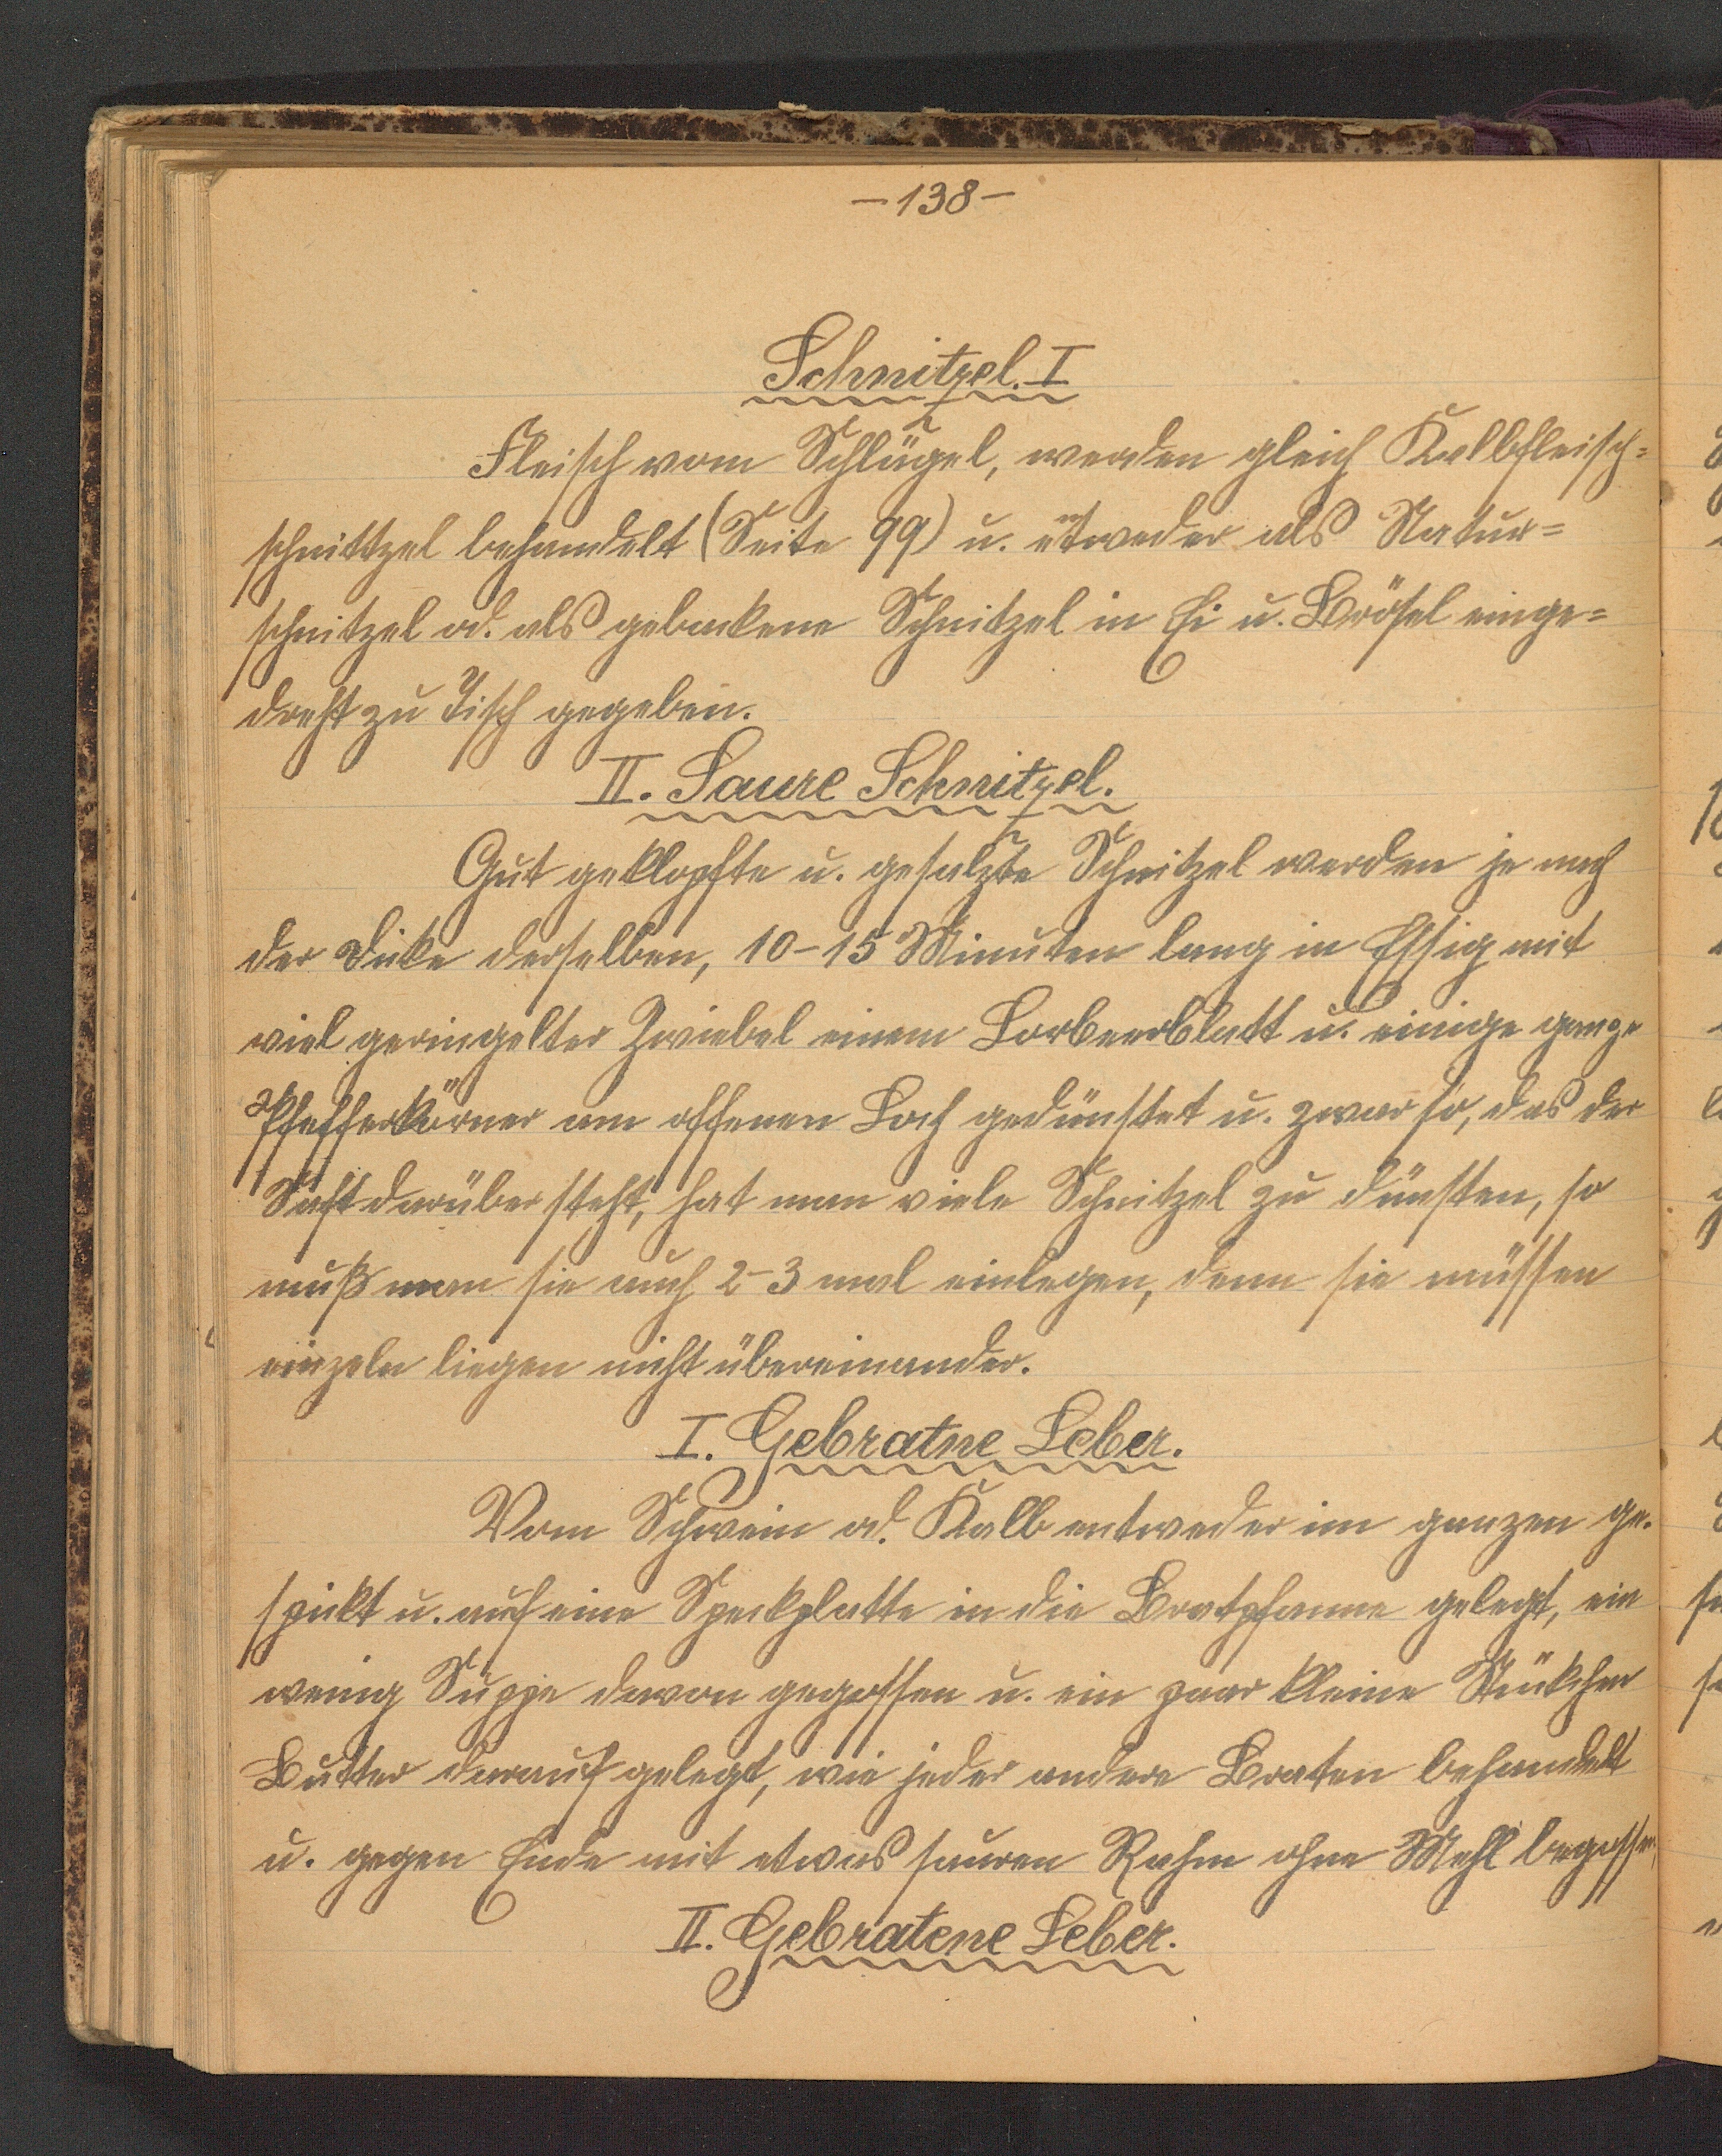 –138–
Schnitzel. I
Fleisch vom Schlügel, werden gleich Kalbfleisch=
schnittzel behandelt (Seite 99) u. entweder als Natur=
schnitzel od. als gebackene Schnitzel in Ei u. Brösel einge=
dreht zu Tisch gegeben.
II. Saure Schnitzel.
Gut geklopfte u. gesalzte Schnitzel werden je nach
der Dicke derselben, 10–15 Minuten lang in Essig mit
viel geringelter Zwiebel einem Lorbeerblatt u. einige ganze
Pfefferkörner am offenen Loch gedünstet u. zwar so, das der
Saft darüber steht, hat man viele Schnitzel zu dünsten, so
muß man sie auch 2–3 mal einlegen, denn sie müssen
einzeln liegen nicht übereinander.
I. Gebratne Leber.
Vom Schwein od. Kalb entweder im ganzen ge.
spickt u. auf eine Speckplatte in die Bratpfanne gelegt, ein
wenig Suppe davon gegossen u. ein paar kleine Stückchen
Butter darauf gelegt, wie jeder andere Braten behandelt
u. gegen Ende mit etwas sauren Rahm ohne Mehl begossen,
II. Gebratene Leber.